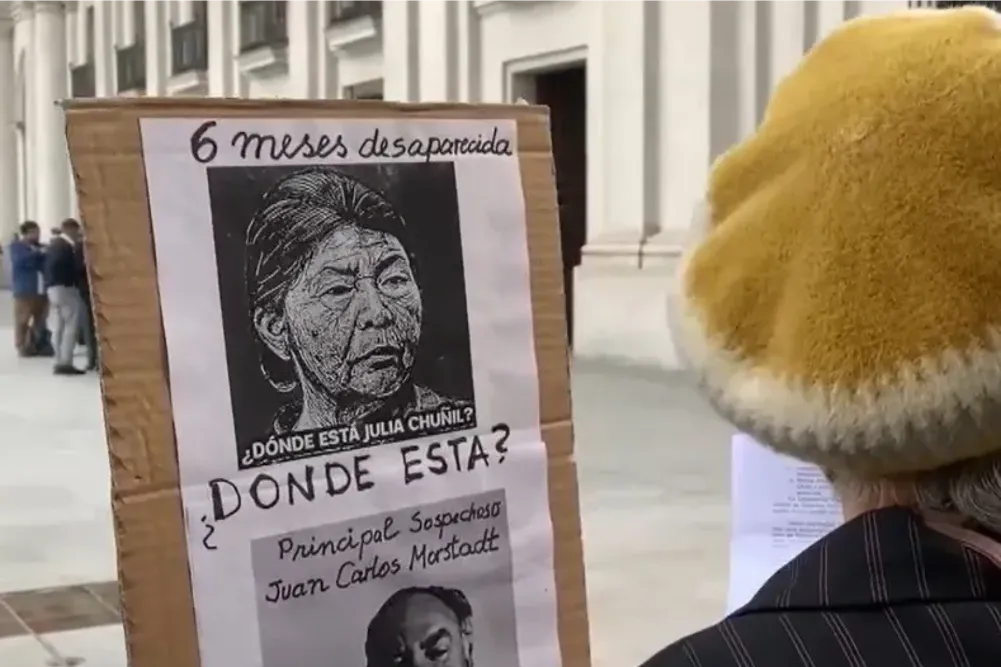 6 meses desaparecida
¿DÓNDE ESTÁ JULIA CHUÑIL?
¿DONDE ESTA?
Principal Sospechoso
Juan Carlos Morstadt